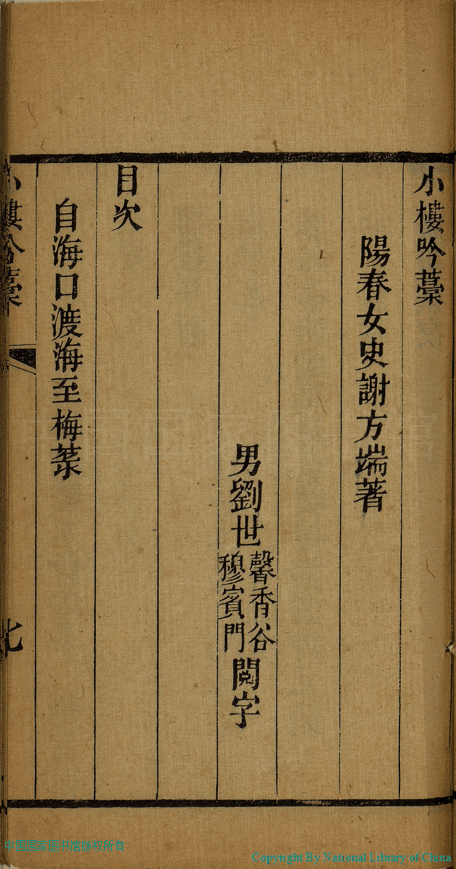 小樓吟藁
陽春女史謝方端著
男劉世馨香谷穆賓門閱字
目次
自海口渡海至梅菉
小樓吟藁
Copyright By National Library of China